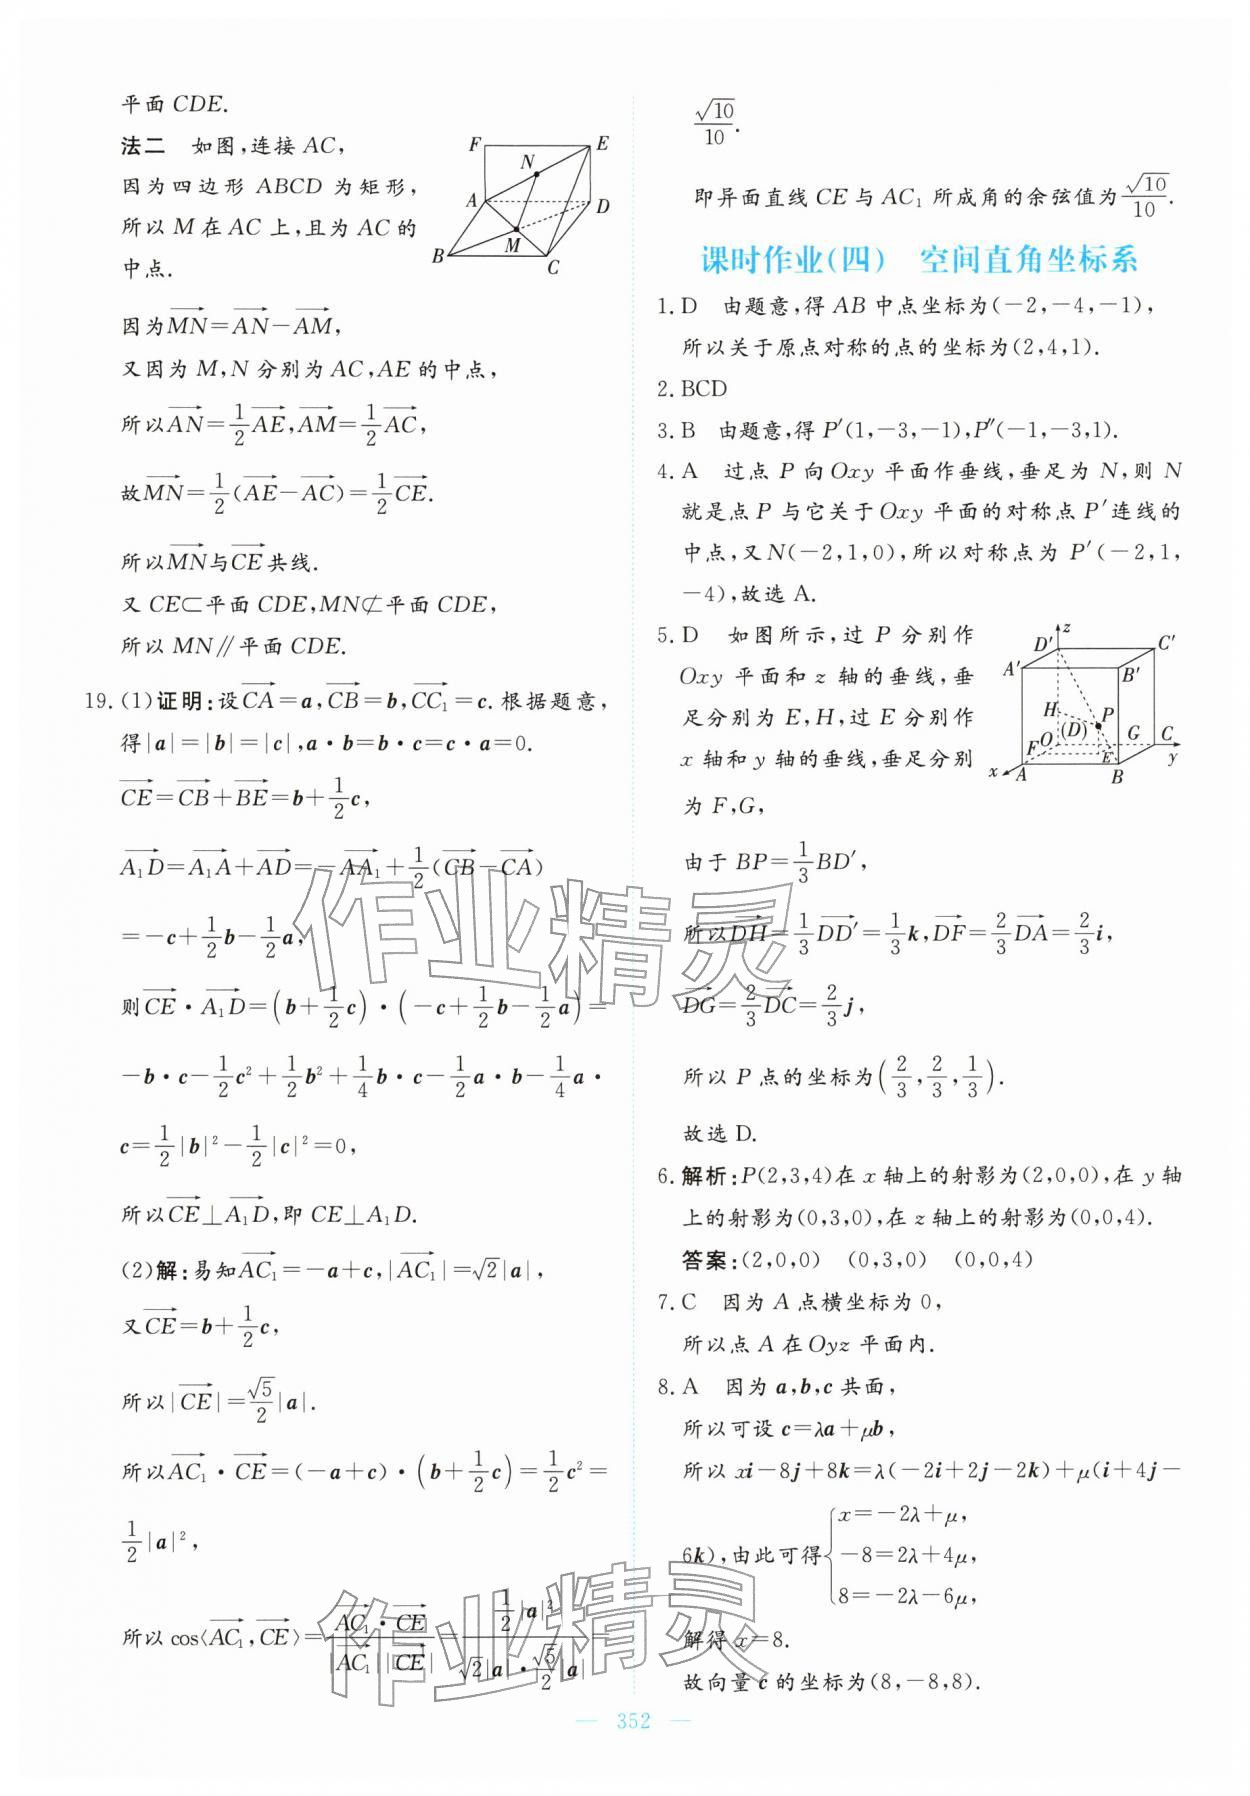 平面 CDE.
法二　如图,连接 AC,
因为四边形 ABCD 为矩形,
所以 M 在 AC 上,且为 AC 的
中点.
F E N A D M B C
因为$\overrightarrow{MN}=\overrightarrow{AN}-\overrightarrow{AM}$,
又因为 M,N 分别为 AC,AE 的中点,
所以$\overrightarrow{AN}=\frac{1}{2}\overrightarrow{AE},\overrightarrow{AM}=\frac{1}{2}\overrightarrow{AC}$,
故$\overrightarrow{MN}=\frac{1}{2}(\overrightarrow{AE}-\overrightarrow{AC})=\frac{1}{2}\overrightarrow{CE}$.
所以$\overrightarrow{MN}$与$\overrightarrow{CE}$共线.
又 CE⊂平面 CDE,MN⊄平面 CDE,
所以 MN∥平面 CDE.
19. (1)证明:设$\overrightarrow{CA}=a,\overrightarrow{CB}=b,\overrightarrow{CC_1}=c$.根据题意,
得|a|=|b|=|c|,a·b=b·c=c·a=0.
$\overrightarrow{CE}=\overrightarrow{CB}+\overrightarrow{BE}=b+\frac{1}{2}c$,
$\overrightarrow{A_1D}=\overrightarrow{A_1A}+\overrightarrow{AD}=-\overrightarrow{AA_1}+\frac{1}{2}(\overrightarrow{CB}-\overrightarrow{CA})$
$=-c+\frac{1}{2}b-\frac{1}{2}a$,
则$\overrightarrow{CE}·\overrightarrow{A_1D}=(b+\frac{1}{2}c)·(-c+\frac{1}{2}b-\frac{1}{2}a)=$
$-b·c-\frac{1}{2}c^2+\frac{1}{2}b^2+\frac{1}{4}b·c-\frac{1}{2}a·b-\frac{1}{4}a·$
$c=\frac{1}{2}|b|^2-\frac{1}{2}|c|^2=0$,
所以$\overrightarrow{CE}⊥\overrightarrow{A_1D}$,即 CE⊥A₁D.
(2)解:易知$\overrightarrow{AC_1}=-a+c,|\overrightarrow{AC_1}|=\sqrt{2}|a|$,
又$\overrightarrow{CE}=b+\frac{1}{2}c$,
所以$|\overrightarrow{CE}|=\frac{\sqrt{5}}{2}|a|$.
所以$\overrightarrow{AC_1}·\overrightarrow{CE}=(-a+c)·(b+\frac{1}{2}c)=\frac{1}{2}c^2=$
$\frac{1}{2}|a|^2$,
所以 $\cos\langle\overrightarrow{AC_1},\overrightarrow{CE}\rangle=\frac{\overrightarrow{AC_1}·\overrightarrow{CE}}{|\overrightarrow{AC_1}||\overrightarrow{CE}|}=\frac{\frac{1}{2}|a|^2}{\sqrt{2}|a|·\frac{\sqrt{5}}{2}|a|}=$
$\frac{\sqrt{10}}{10}$.
即异面直线 CE 与 AC₁ 所成角的余弦值为$\frac{\sqrt{10}}{10}$.
课时作业(四)　空间直角坐标系
1. D　由题意,得 AB 中点坐标为(-2,-4,-1),
所以关于原点对称的点的坐标为(2,4,1).
2. BCD
3. B　由题意,得 P′(1,-3,-1),P″(-1,-3,1).
4. A　过点 P 向 Oxy 平面作垂线,垂足为 N,则 N
就是点 P 与它关于 Oxy 平面的对称点 P′连线的
中点,又 N(-2,1,0),所以对称点为 P′(-2,1,
-4),故选 A.
5. D　如图所示,过 P 分别作
Oxy 平面和 z 轴的垂线,垂
足分别为 E,H,过 E 分别作
x 轴和 y 轴的垂线,垂足分别
为 F,G,
z D′ C′ A′ B′ H P O (D) G C F E x A B y
由于 $BP=\frac{1}{3}BD′$,
所以$\overrightarrow{DH}=\frac{1}{3}\overrightarrow{DD′}=\frac{1}{3}k,\overrightarrow{DF}=\frac{2}{3}\overrightarrow{DA}=\frac{2}{3}i$,
$\overrightarrow{DG}=\frac{2}{3}\overrightarrow{DC}=\frac{2}{3}j$,
所以 P 点的坐标为$(\frac{2}{3},\frac{2}{3},\frac{1}{3})$.
故选 D.
6. 解析:P(2,3,4)在 x 轴上的射影为(2,0,0),在 y 轴
上的射影为(0,3,0),在 z 轴上的射影为(0,0,4).
答案:(2,0,0)　(0,3,0)　(0,0,4)
7. C　因为 A 点横坐标为 0,
所以点 A 在 Oyz 平面内.
8. A　因为 a,b,c 共面,
所以可设 c=λa+μb,
所以 xi-8j+8k=λ(-2i+2j-2k)+μ(i+4j-
6k),由此可得$\begin{cases}x=-2λ+μ,\\-8=2λ+4μ,\\8=-2λ-6μ,\end{cases}$
解得 x=8.
故向量 c 的坐标为(8,-8,8).
作业精灵
作业精灵
— 352 —